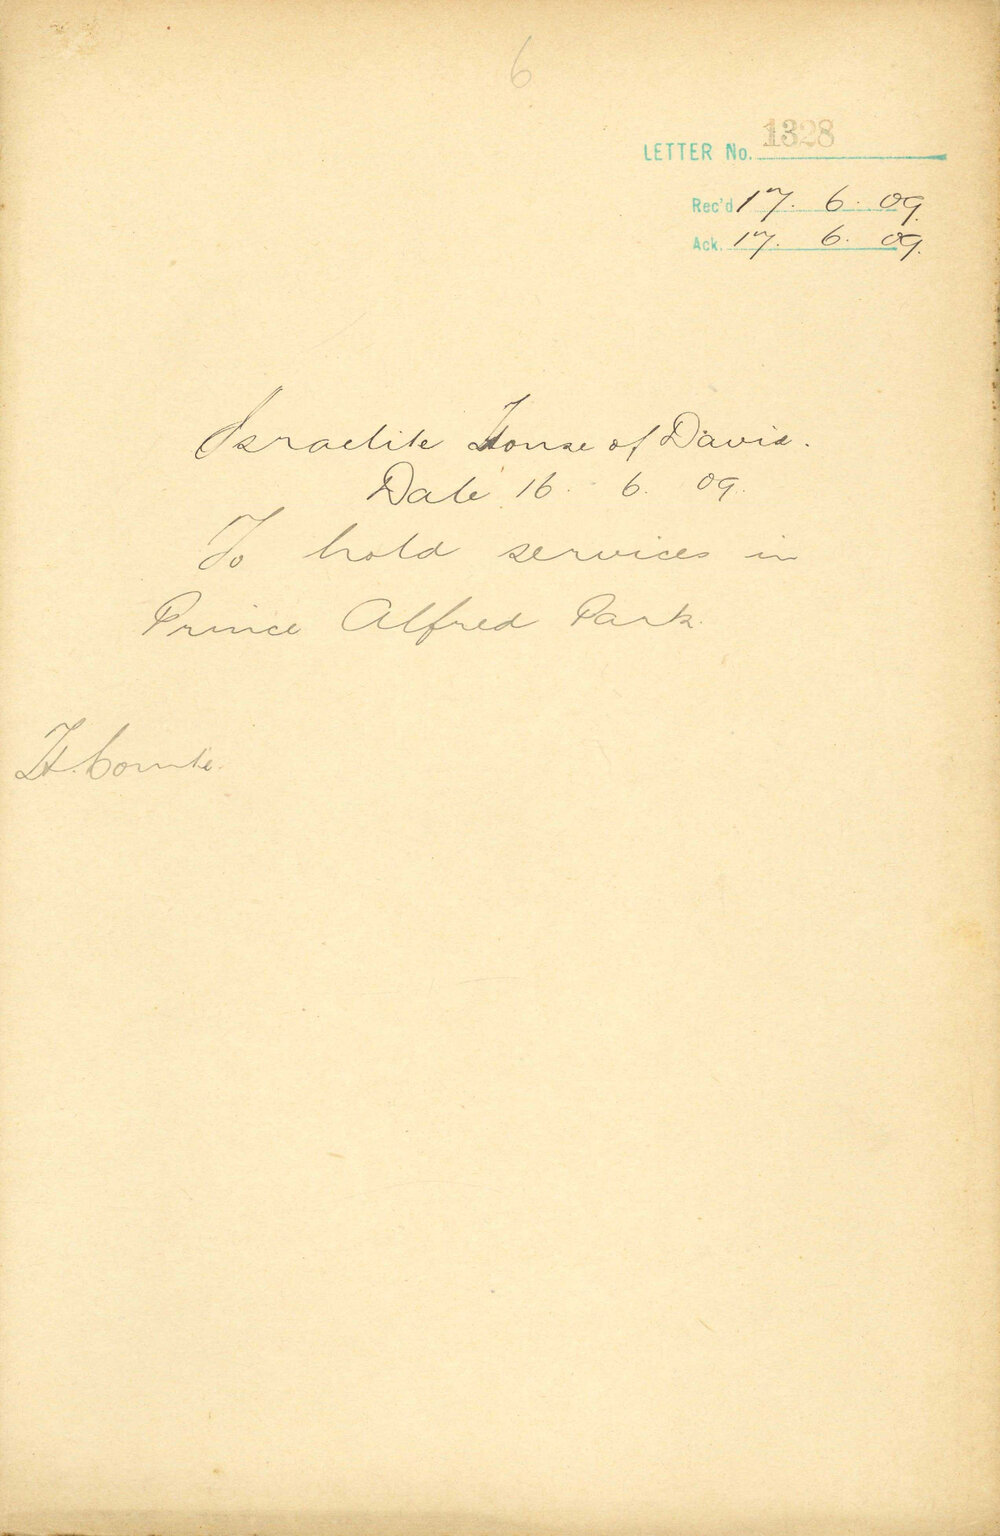 6
LETTER No. 1328
Rec'd 17. 6. 09.
Ack. 17. 6. 09.
Israelite House of David.
Date 16. 6. 09.
To hold services in
Prince Alfred Park.
H.